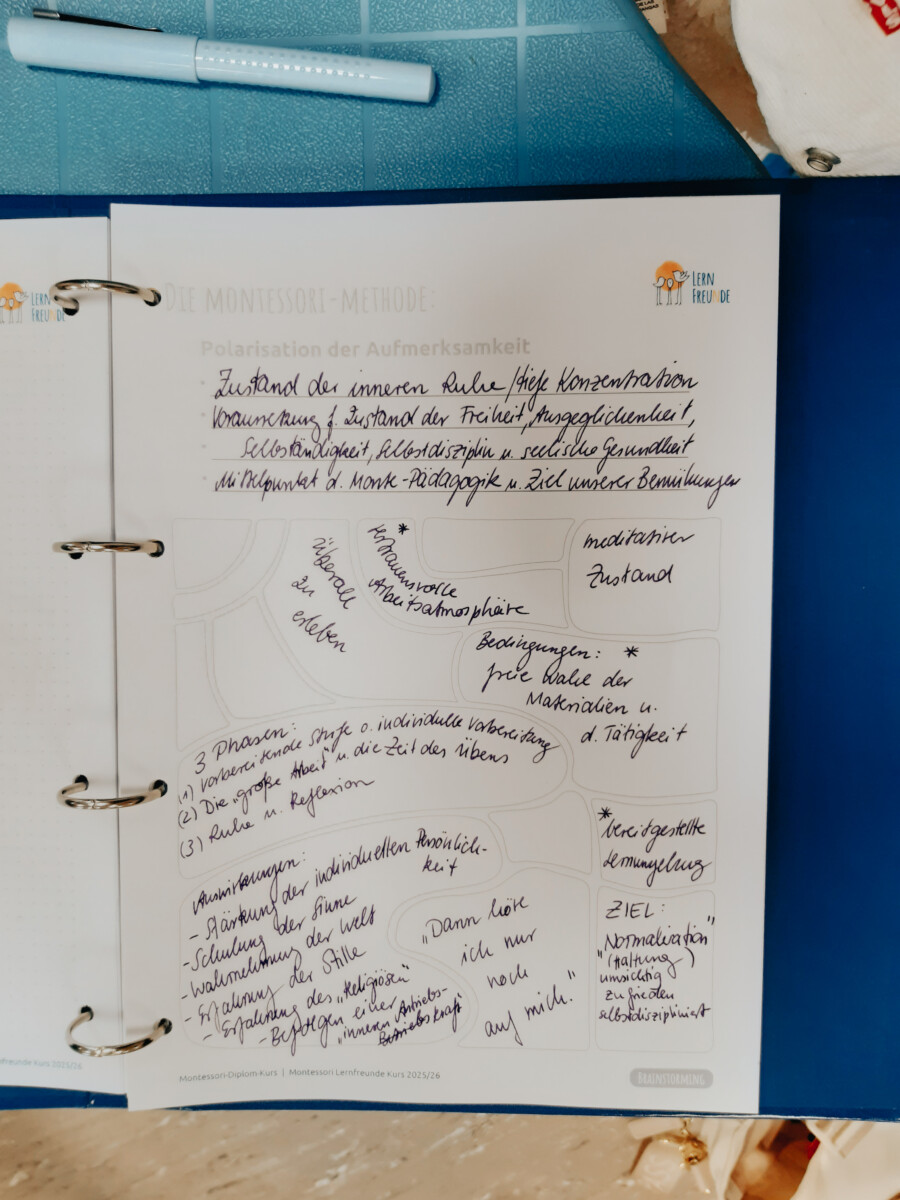 LERN
FREUNDE
DIE MONTESSORI-METHODE:
LERN
FREUNDE
Polarisation der Aufmerksamkeit
Zustand der inneren Ruhe / tiefe Konzentration
Voraussetzung f. Zustand der Freiheit, Ausgeglichenheit,
Selbständigkeit, Selbstdisziplin u. seelische Gesundheit
Mittelpunkt d. Monte-Pädagogik u. Ziel unserer Bemühungen
überall
zu
erleben
*
vertrauensvolle
Arbeitsatmosphäre
meditativer
Zustand
Bedingungen: *
freie Wahl der
Materialien u.
d. Tätigkeit
3 Phasen:
(1) Vorbereitende Stufe o. individuelle Vorbereitung
(2) Die „große Arbeit" u. die Zeit des Übens
(3) Ruhe u. Reflexion
*
bereitgestellte
Lernumgebung
Auswirkungen:
- Stärkung der individuellen Persönlich-
keit
- Schulung der Sinne
- Wahrnehmung der Welt
- Erfahrung der Stille
- Erfahrung des „Religiösen"
- Befolgen einer
„inneren Antriebs-
kraft"
„Dann höre
ich nur
noch
auf mich."
ZIEL:
"Normalisation"
(Haltung)
umsichtig
zufrieden
selbstdiszipliniert
freunde Kurs 2025/26
Montessori-Diplom-Kurs | Montessori Lernfreunde Kurs 2025/26
BRAINSTORMING